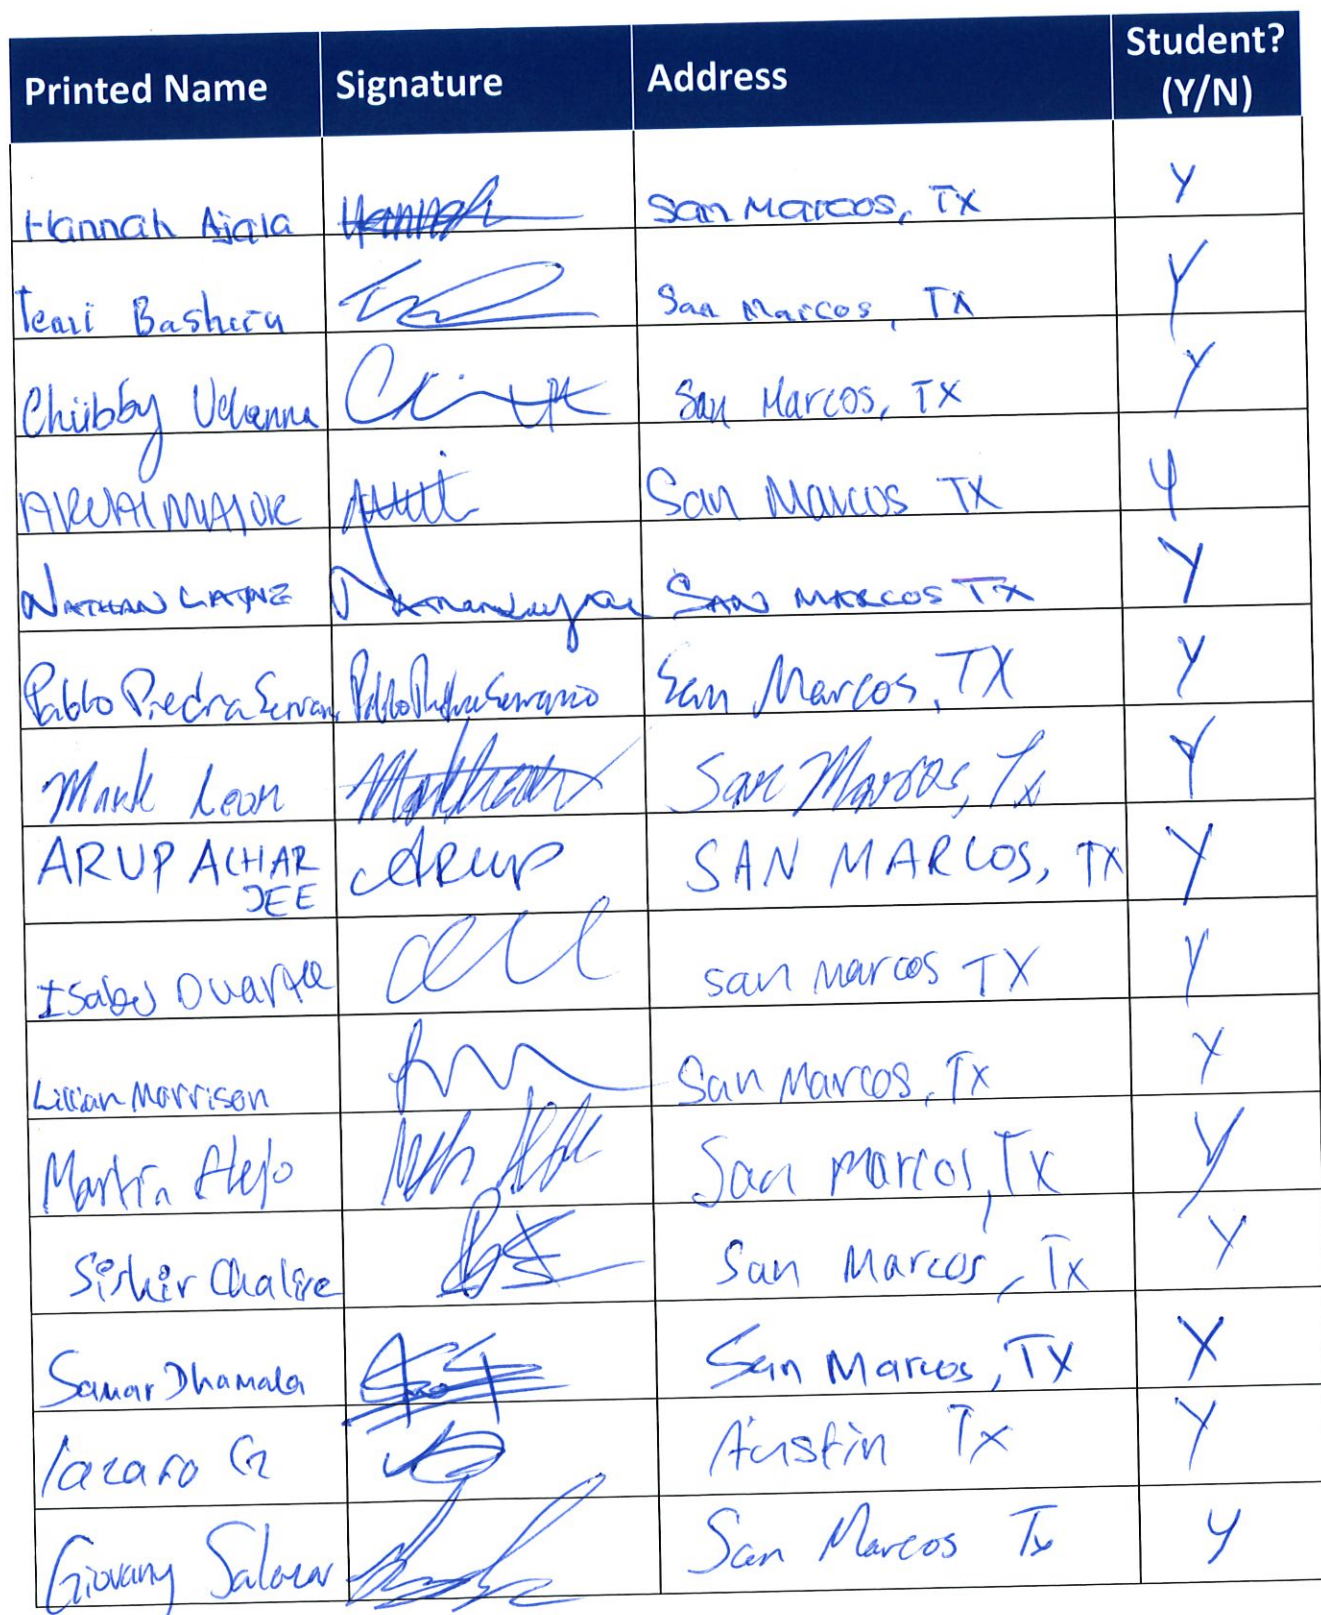 Printed Name Signature Address Student? (Y/N)
Hannah Ajala Hannah San Marcos, TX Y
Temi Bashiru San Marcos, TX Y
Chiibby Uchenna San Marcos, TX Y
San Marcos TX Y
NATHAN LAYNE SAN MARCOS TX Y
Pablo Piedra Serran Pablo Piedra Serrano San Marcos, TX Y
Mark Leon San Marcos, Tx Y
ARUP ACHAR Arup SAN MARCOS, TX Y
JEE
Isabel Duarte san marcos TX Y
Lillian Morrison San Marcos, Tx Y
Martin Alejo San Marcos, Tx Y
Sishir Chalise San Marcos, Tx Y
Samar Dhamala San Marcos, TX Y
lazaro G Austin Tx Y
Giovany Salazar San Marcos Tx y